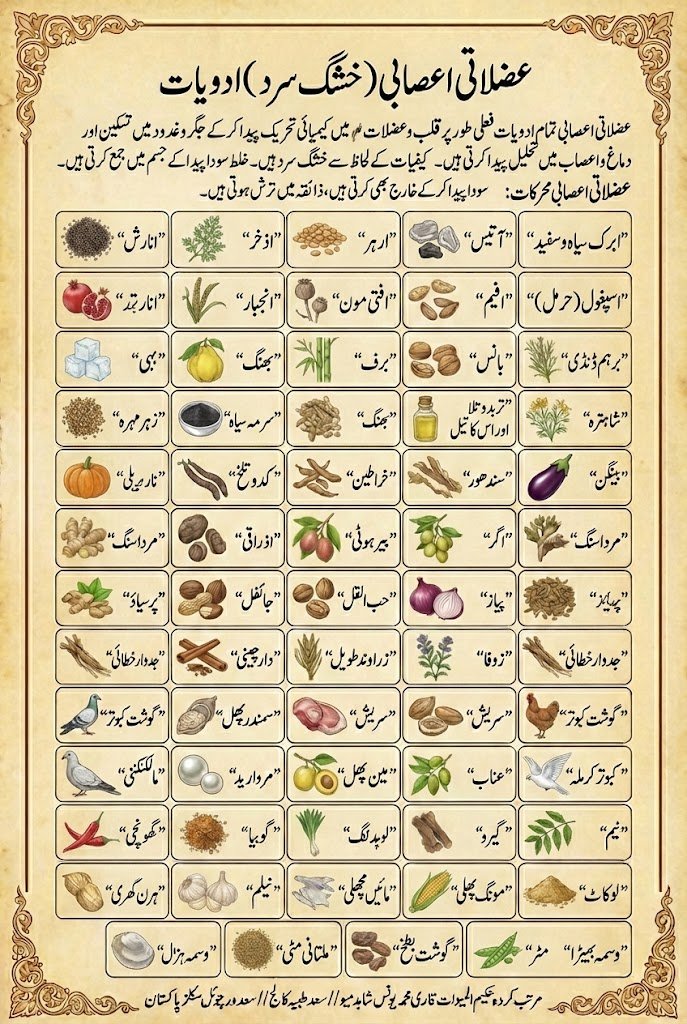 عضلاتی اعصابی (خشک سرد) ادویات
عضلاتی اعصابی تمام ادویات فعلی طور پر قلب و عضلات میں کیمیائی تحریک پیدا کر کے جگر و غدود میں تسکین اور
دماغ و اعصاب میں تحلیل پیدا کرتی ہیں۔ کیفیات کے لحاظ سے خشک سرد ہیں۔ خلط سودا پیدا کے جسم میں جمع کرتی ہیں۔
عضلاتی اعصابی محرکات: سودا پیدا کر کے خارج بھی کرتی ہیں، ذائقہ میں ترش ہوتی ہیں۔
"ابرک سیاہ و سفید" "آتیس" "ارہر" "اذخر" "انارش"
"اسپغول (حرمل)" "افیم" "افتی مون" "انجبار" "انار
"برہم ڈنڈی" "بانس" "برف" "بھنگ" "بہی"
"شاہترہ" "تربد و تلا "بھنگ" "سرمہ سیاہ" "زہر مہرہ"
اور اس کا تیل
"بینگن" "سندھور" "خراطین" "کدو تلخ"
"مرداسنگ" "اگر" "بیر ہوٹی" "اذراقی" "مرداسنگ"
"پیاز" "حب القل" "جائفل" "پرسیاؤ"
"جدوار خطائی" "زوفا" "زراوند طویل" "دار چینی" "جدوار خطائی"
"گوشت کبوتر" "سریش" "سریش" "سمندر پھل" "گوشت کبوتر"
"کبوتر کرملہ" "عناب" "مین پھل" "مروارید" "مالکنگنی"
"نیم" "گیرو" "گوبیا" "گھونچی"
"لوکاٹ" "مونگ پھلی" "مائیں مچھلی" "نیلم" "ہرن گھری"
"وسمہ بھیڑا" مٹر "گوشت بطخ" "ملتانی مٹی" "وسمہ ہزال"
مرتب کردہ حکیم المیوات قاری محمد یونس شاہد میو // سعد طبیہ کالج // سعد ورچوئل سکلز پاکستان